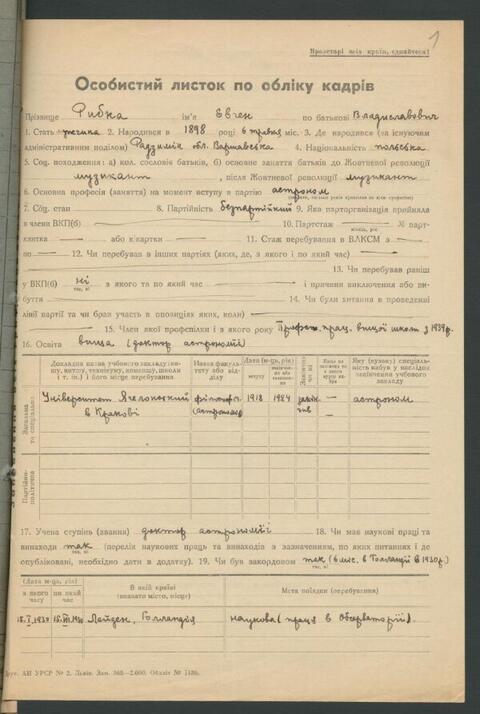 1
Пролетарі всіх країн, єднайтеся!
Особистий листок по обліку кадрів
Прізвище Рибка ім'я Євген по батькові Владиславович
1. Стать мужчина 2. Народився в 1898 році 6 травня міс. 3. Де народився (за існуючим
адміністративним поділом) Радзимін обл. Варшавська 4. Національність польська
5. Соц. походження: а) кол. сословіє батьків, б) основне заняття батьків до Жовтневої революції
музикант, після Жовтневої революції музикант
6. Основна професія (заняття) на момент вступу в партію астроном
7. Соц. стан 8. Партійність безпартійний 9. Яка парторганізація прийняла
в члени ВКП(б) 10. Партстаж № парт-
квитка або к/картки 11. Стаж перебування в ВЛКСМ з —
по — 12. Чи перебував в інших партіях (яких, де, з якого і по який час)
13. Чи перебував раніш
у ВКП(б) ні з якого та по який час — і причини виключення або ви-
буття 14. Чи були хитання в проведенні
лінії партії та чи брав участь в опозиціях яких, коли)
15. Член якої профспілки і з якого року Профсп. прац. вищої школи з 1939 р.
16. Освіта вища (доктор астрономії)
Загальна та спеціальна
Партійно-політична
Докладна назва учбового закладу (вишу, втузу, технікуму, комвишу, школи і т. ін.) і його місце перебування
Назва факультету або відділу
Дата (м-ць, рік)
вступу
Яку (вузьку) спеціальність набув у наслідок закінчення учбового закладу
Університет Ягеллонський в Кракові
1918 1924 — астроном
17. Учена ступінь (звання) доктор астрономії 18. Чи має наукові праці та
винаходи так (перелік наукових праць та винаходів з зазначенням, по яких питаннях і де
опубліковані, необхідно дати в додатку). 19. Чи був закордоном так (6 міс. в Голландії в 1930 р.)
(дата м-ць, рік)
з якого часу
по який час
В якій країні (вказати місто, місце)
Мета поїздки (перебування)
Лейден, Голландія наукова (праця в Обсерваторії)
Друк. АН УРСР № 2. Львів. Зам. 368—2.000. Обліт №